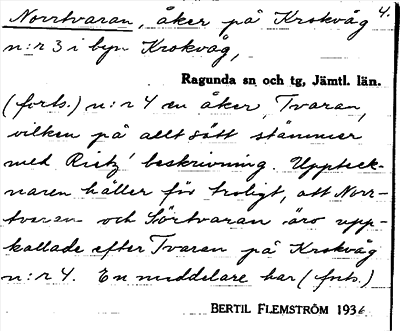 Norrtvaran, åker på Krokvåg 4.
n:r 3 i byn Krokvåg,
Ragunda sn och tg, Jämtl. län.
(forts.) n:r 4 en åker, Tvaran,
vilken på allt sätt stämmer
med Rietz' beskrivning. Uppteck-
naren håller för troligt, att Norr-
tvaran och Sörtvaran äro upp-
kallade efter Tvaran på Krokvåg
n:r 4. En meddelare har (forts.)
BERTIL FLEMSTRÖM 1936.